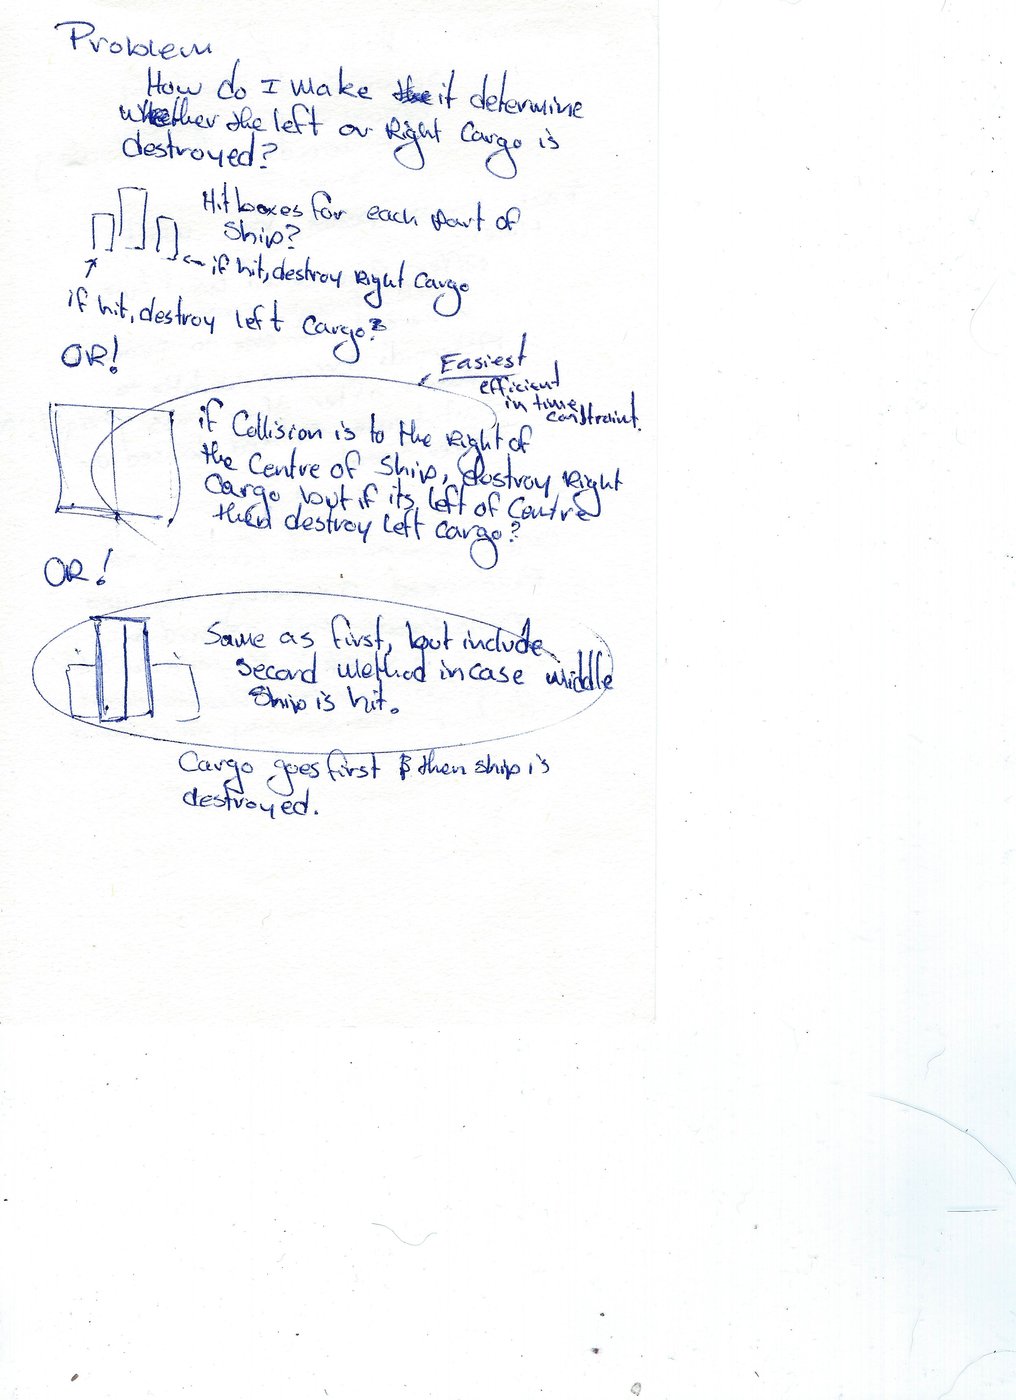 Problem
How do I make it determine
whether the left or Right Cargo is
destroyed?
Hitboxes for each part of
Ship?
if hit, destroy Right Cargo
if hit, destroy left Cargo?
OR!
Easiest
efficient
in time
constraint.
if Collision is to the Right of
the Centre of Ship, destroy Right
Cargo but if its left of Centre
then destroy left Cargo?
OR!
Same as first, but include
second method in case middle
Ship is hit.
Cargo goes first & then ship is
destroyed.